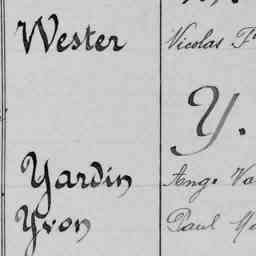 Wester Nicolas F
Y.
Yardin Ang. Va
Yvon Paul